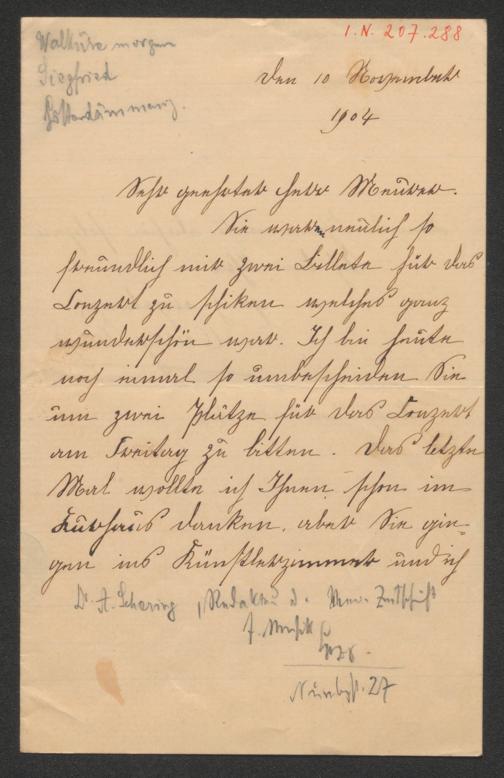 I. N. 207.288
Walküre morgen
Siegfried
Götterdämmerung.
Den 10 November
1904
Sehr geehrter Herr Meurer.
Sie waren neulich so
freundlich mir zwei Billete für das
Conzert zu schiken welches ganz
wunderschön war. Ich bin heute
noch einmal so unbescheiden Sie
um zwei Plätze für das Conzert
am Freitag zu bitten. Das letzte
Mal wollte ich Ihnen schon im
Kurhaus danken, aber Sie gin-
gen ins Künstlerzimmer und ich
Dr. A. Schering, Redakteur d. Neue Zeitschrift
f. Musik
Nürnbgst. 27